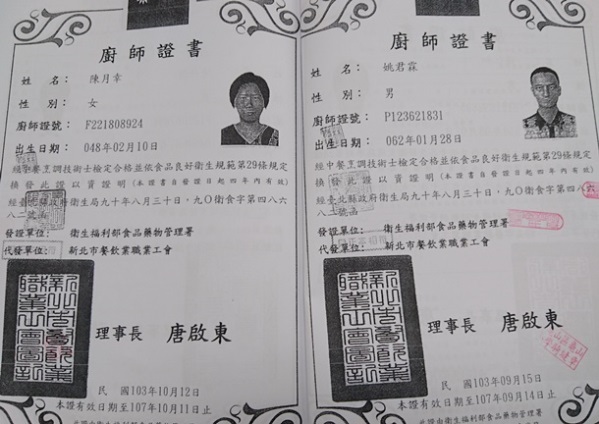 廚師證書
姓名： 陳月幸
性別： 女
廚師證號： F221808924
出生日期： 048年02月10日
經中餐烹調技術士檢定合格並依食品良好衛生規範第29條規定
換發此證以資證明(本證書自發證日起四年內有效)
經臺北縣政府衛生局九十年八月三十日，九〇衛食字第四八六
八二號函
發證單位： 衛生福利部食品藥物管理署
代發單位： 新北市餐飲業職業工會
理事長 唐啟東
民國103年10月12日
本證有效日期至107年10月11日止
廚師證書
姓名： 姚君霖
性別： 男
廚師證號： P123621831
出生日期： 062年01月28日
經中餐烹調技術士檢定合格並依食品良好衛生規範第29條規定
換發此證以資證明(本證書自發證日起四年內有效)
經臺北縣政府衛生局九十年八月三十日，九〇衛食字第四八六
八二號函
發證單位： 衛生福利部食品藥物管理署
代發單位： 新北市餐飲業職業工會
理事長 唐啟東
民國103年09月15日
本證有效日期至107年09月14日止